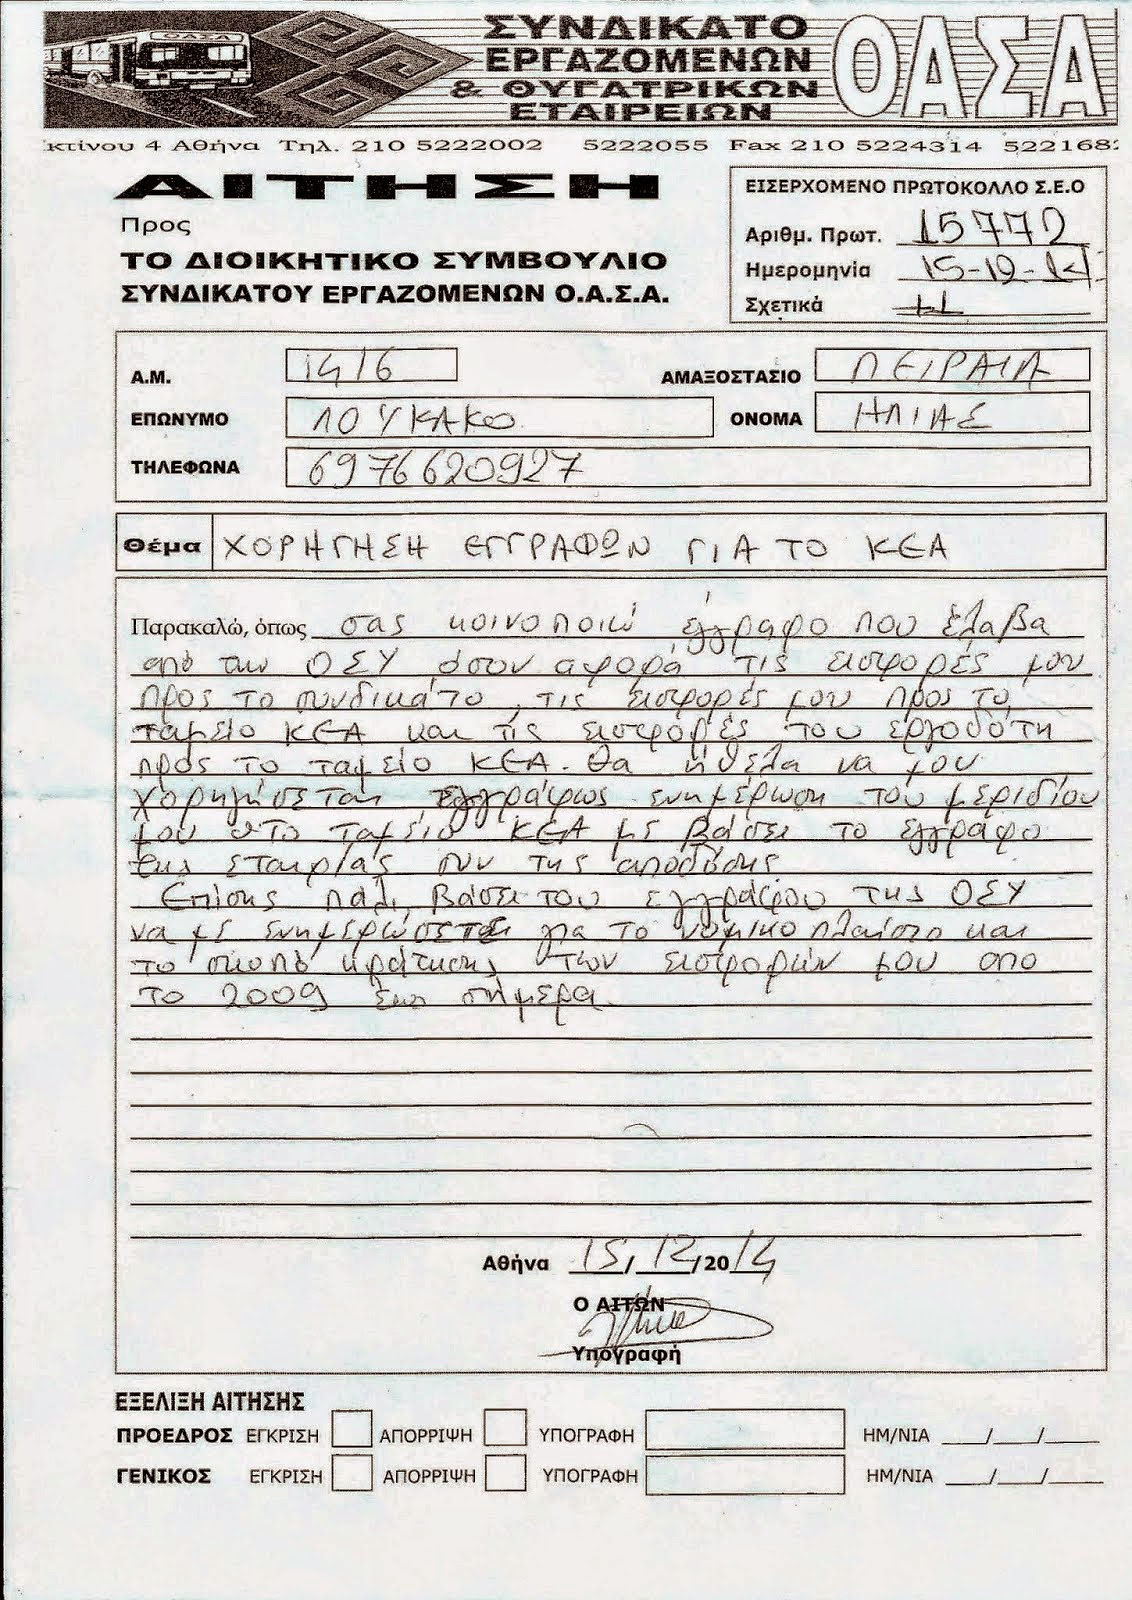 ΟΑΣΑ
ΣΥΝΔΙΚΑΤΟ
ΕΡΓΑΖΟΜΕΝΩΝ
& ΘΥΓΑΤΡΙΚΩΝ
ΕΤΑΙΡΕΙΩΝ
ΟΑΣΑ
κτίνου 4 Αθήνα Τηλ. 210 5222002 5222055 Fax 210 5224314 522168
ΑΙΤΗΣΗ
Προς
ΤΟ ΔΙΟΙΚΗΤΙΚΟ ΣΥΜΒΟΥΛΙΟ
ΣΥΝΔΙΚΑΤΟΥ ΕΡΓΑΖΟΜΕΝΩΝ Ο.Α.Σ.Α.
ΕΙΣΕΡΧΟΜΕΝΟ ΠΡΩΤΟΚΟΛΛΟ Σ.Ε.Ο
Αριθμ. Πρωτ. 15772
Ημερομηνία 15-12-14
Σχετικά
Α.Μ. 1416 ΑΜΑΞΟΣΤΑΣΙΟ ΠΕΙΡΑΙΑ
ΕΠΩΝΥΜΟ ΛΟΥΚΑΚΟΣ ΟΝΟΜΑ ΗΛΙΑΣ
ΤΗΛΕΦΩΝΑ 6976620927
Θέμα ΧΟΡΗΓΗΣΗ ΕΓΓΡΑΦΩΝ ΓΙΑ ΤΟ ΚΕΑ
Παρακαλώ, όπως σας κοινοποιώ έγγραφο που έλαβα
από την ΟΣΥ όσον αφορά τις εισφορές μου
προς το συνδικάτο, τις εισφορές μου προς το
ταμείο ΚΕΑ και τις εισφορές του εργοδότη
προς το ταμείο ΚΕΑ. Θα ήθελα να μου
χορηγήσεται εγγράφως ενημέρωση του μεριδίου
μου στο ταμείο ΚΕΑ με βάσει το έγγραφο
της εταιρίας συν της αποδόσης
Επίσης πάλι βάσει του εγγράφου της ΟΣΥ
να με ενημερώσεται για το νομικό πλαίσιο και
το σκοπό κράτησης των εισφορών μου από
το 2009 έως σήμερα.
Αθήνα 15/12/2014
Ο ΑΙΤΩΝ
Υπογραφή
ΕΞΕΛΙΞΗ ΑΙΤΗΣΗΣ
ΠΡΟΕΔΡΟΣ ΕΓΚΡΙΣΗ ΑΠΟΡΡΙΨΗ ΥΠΟΓΡΑΦΗ ΗΜ/ΝΙΑ ___/___/___
ΓΕΝΙΚΟΣ ΕΓΚΡΙΣΗ ΑΠΟΡΡΙΨΗ ΥΠΟΓΡΑΦΗ ΗΜ/ΝΙΑ ___/___/___